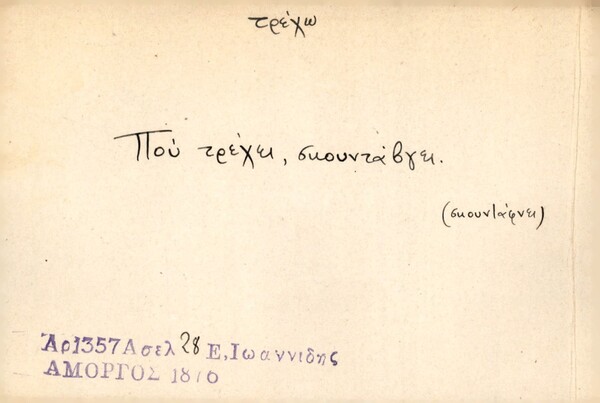 τρέχω
Πού τρέχει, σκουντάβγει.
(σκουντάφνει)
Ἀρ1357Ασελ 28 Ε,Ιωαννιδης
ΑΜΟΡΓΟΣ 1876